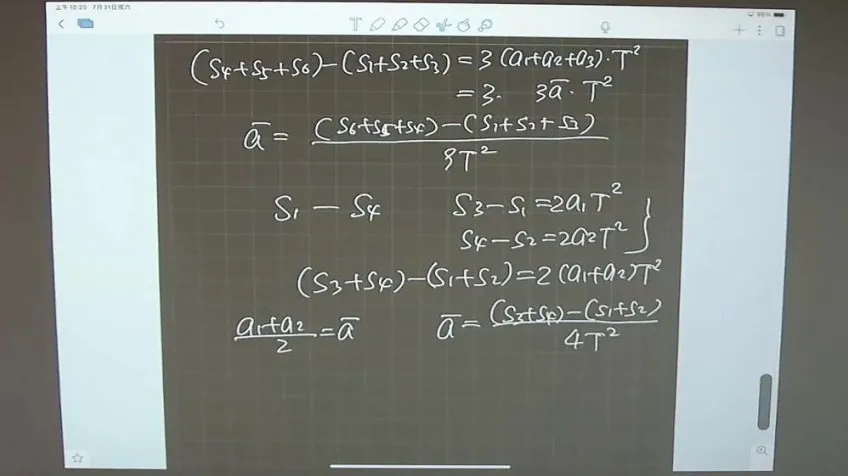 上午10:25 7月31日周六
98%
T
(S4+S5+S6)-(S1+S2+S3)=3(a1+a2+a3)·T²
=3· 3a̅·T²
a̅=((S6+S5+S4)-(S1+S2+S3))/9T²
S1 — S4 S3-S1=2a1T²
S4-S2=2a2T²
(S3+S4)-(S1+S2)=2(a1+a2)T²
(a1+a2)/2=a̅ a̅=((S3+S4)-(S1+S2))/4T²